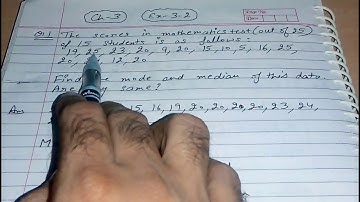 Page No.
Date
Ch-3 Ex-3.2
Q.1 The scores in mathematics test (out of 25)
of 15 students is as follows:
19, 25, 23, 20, 9, 20, 15, 10, 5, 16, 25,
20, 12, 20
Find the mode and median of this data.
Are they same?
Ans 15, 16, 19, 20, 20, 20, 20, 23, 24,
M